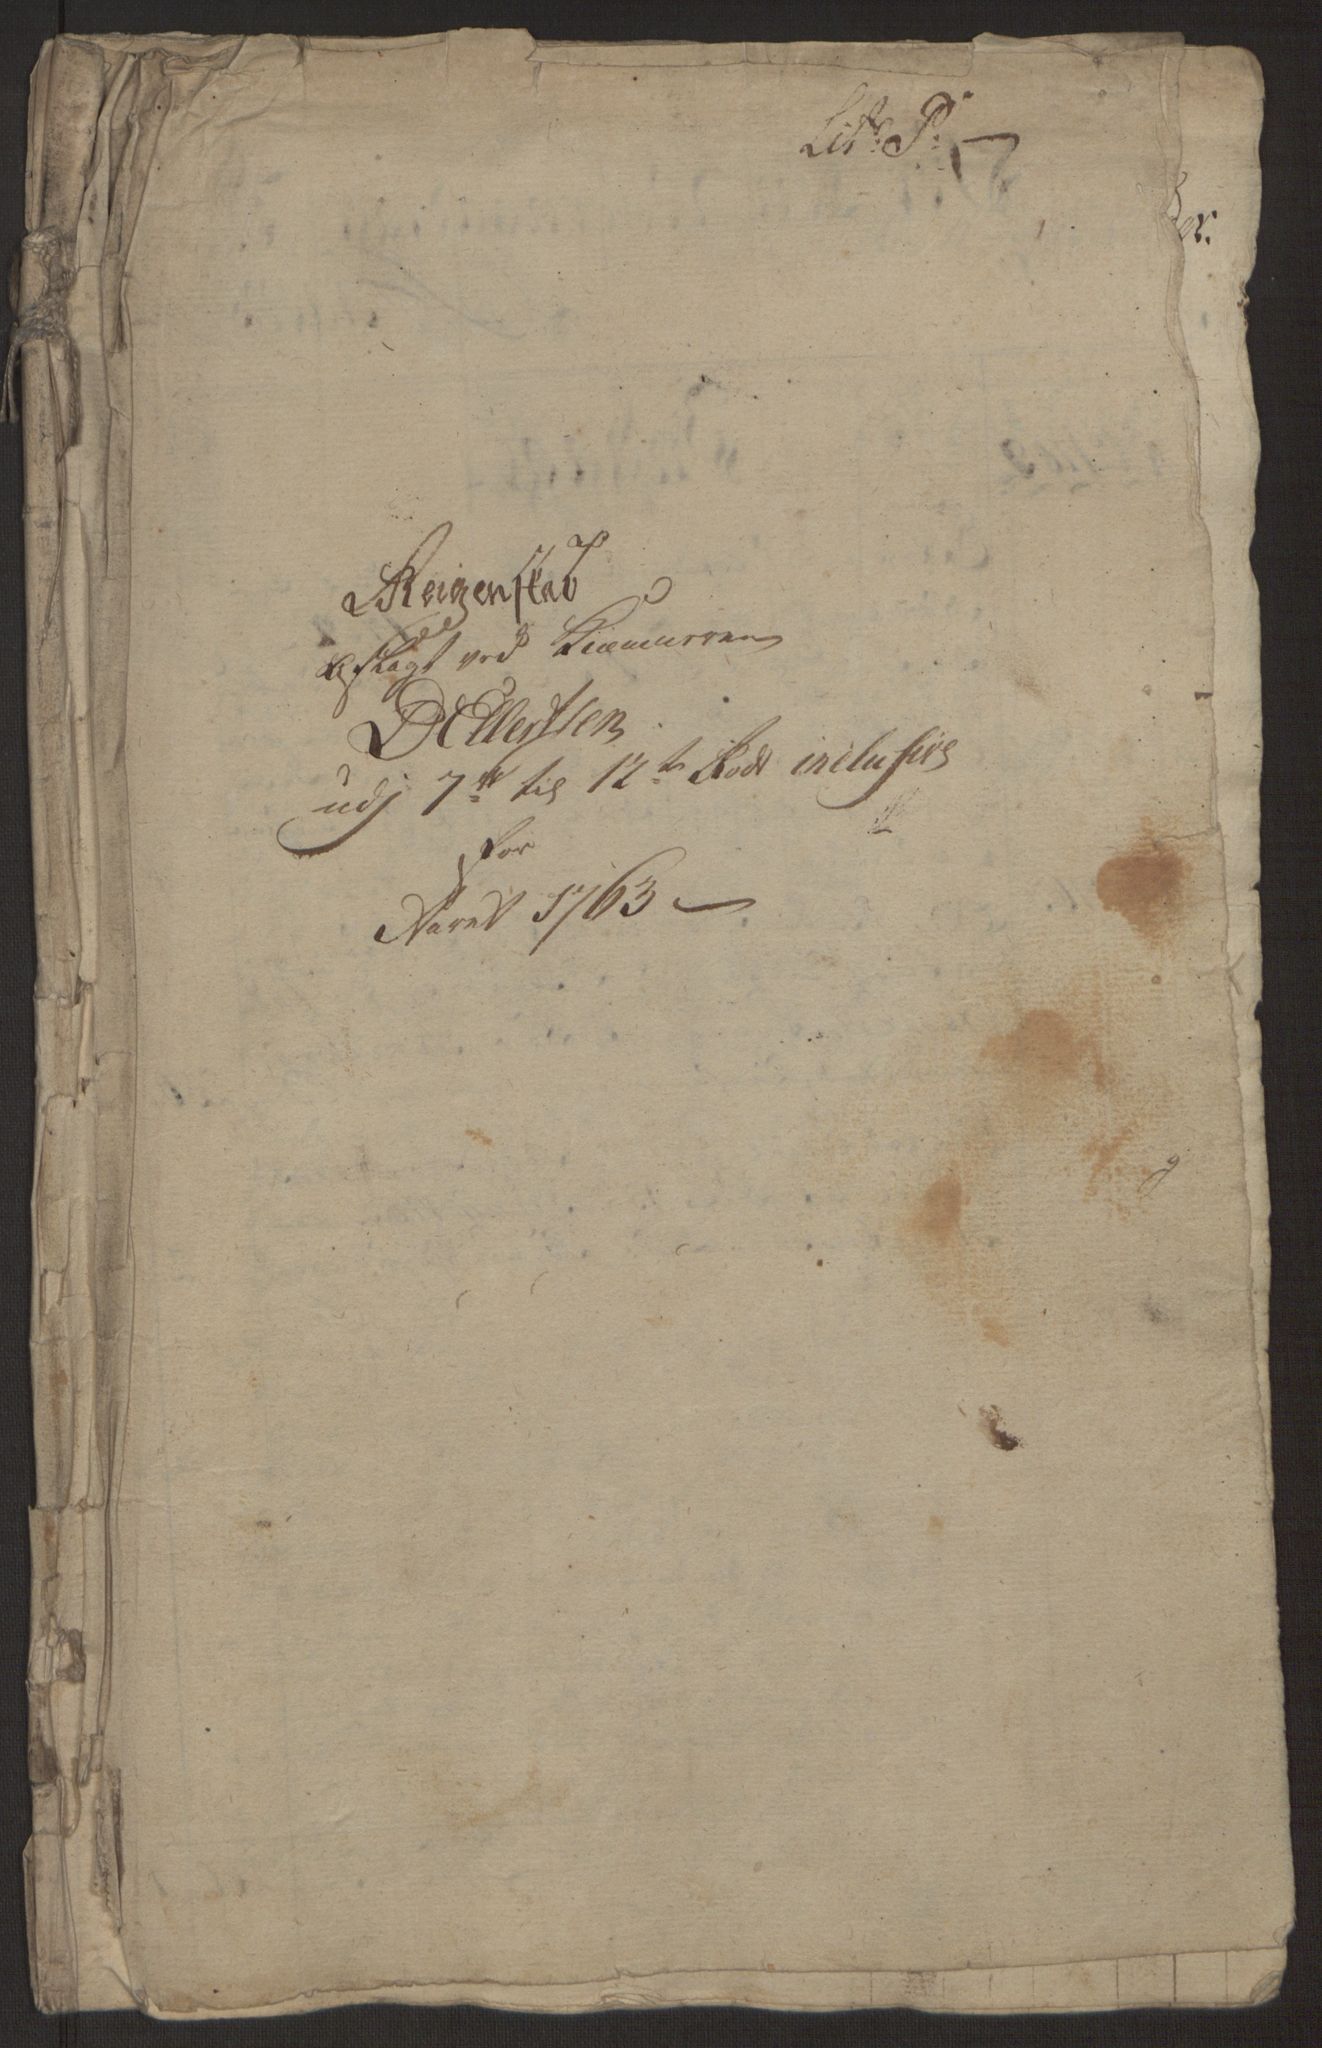 Litr. P.
Reigenskab
Aflagt ved Kiæmureren
D Ellertsen
udj 7de til 12te Rode inclusive
for
Aaret 1763